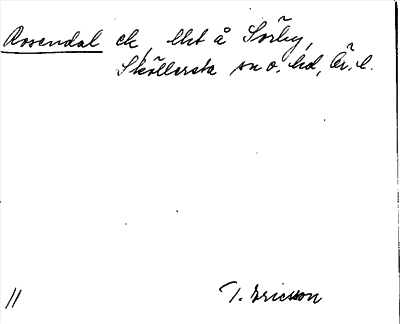 Rosendal ek, lht å Sörby,
Sköllersta sn o. hd, Ör. l.
11 T. Ericsson